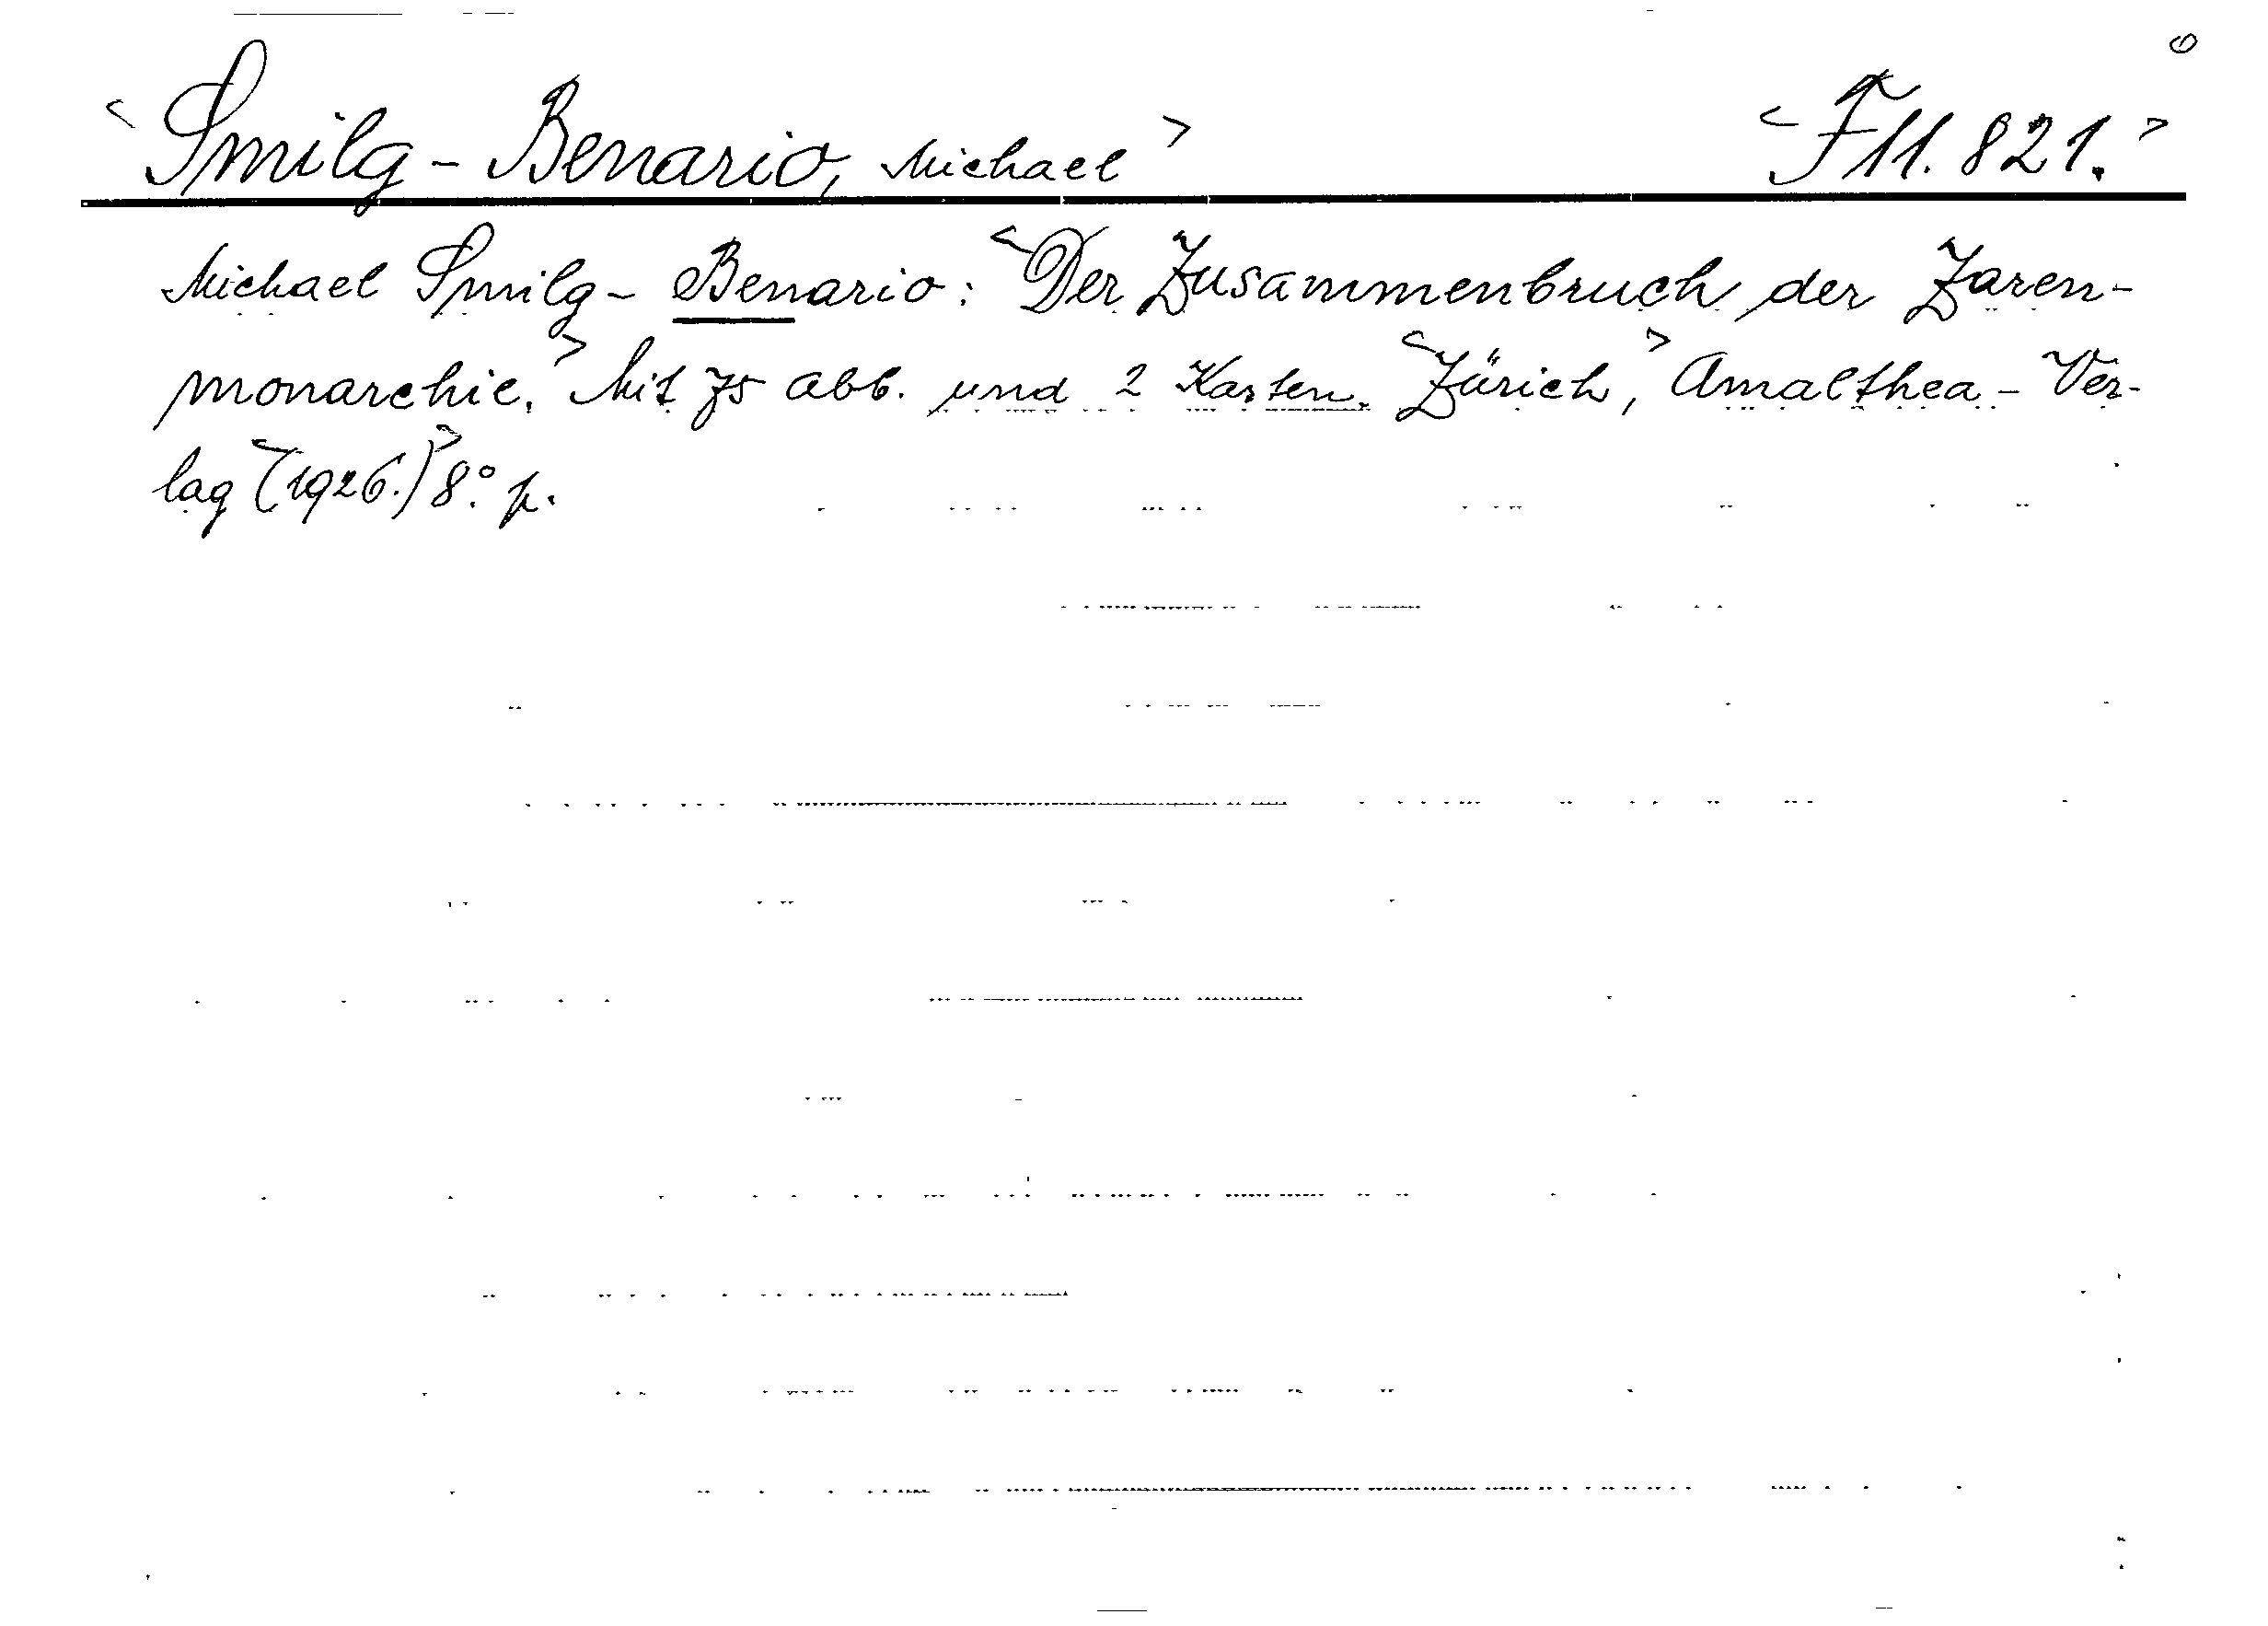 <Smilg-Benario, Michael> <F 11.821.>
Michael Smilg-Benario: <Der Zusammenbruch der Zaren-
monarchie.> Mit 75 Abb. und 2 Karten. <Zürich,> Amalthea-Ver-
lag <(1926.)> 8.° p.